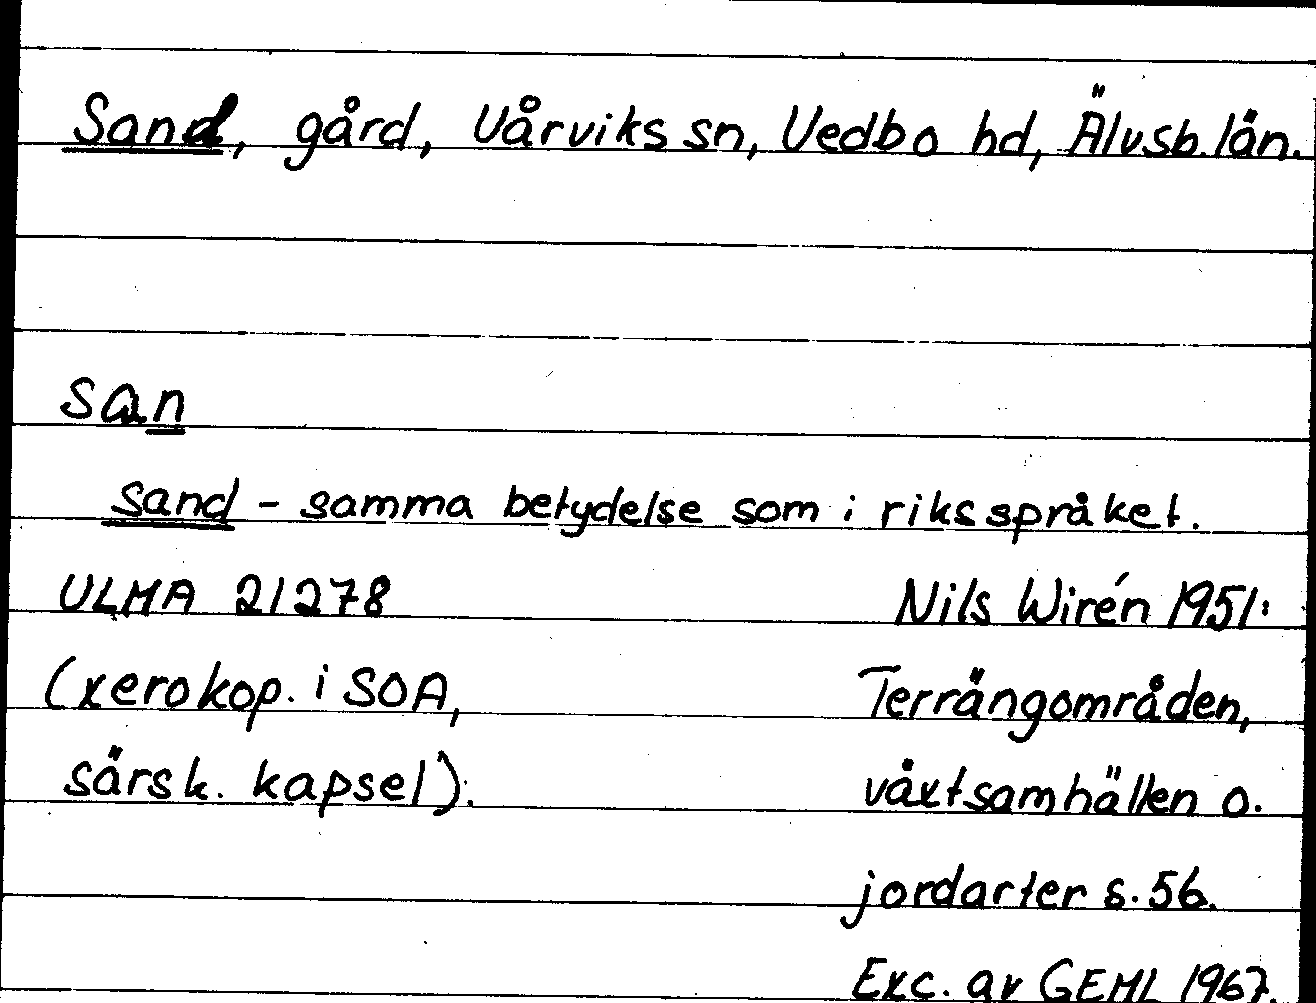 Sand, gård, Vårviks sn, Vedbo hd, Älvsb. län.
san
sand - samma betydelse som i riksspråket.
ULMA 21278 Nils Wirén 1951:
(xerokop. i SOA, Terrängområden,
särsk. kapsel). växtsamhällen o.
jordarter s. 56.
Exc. av GEHL 1967.